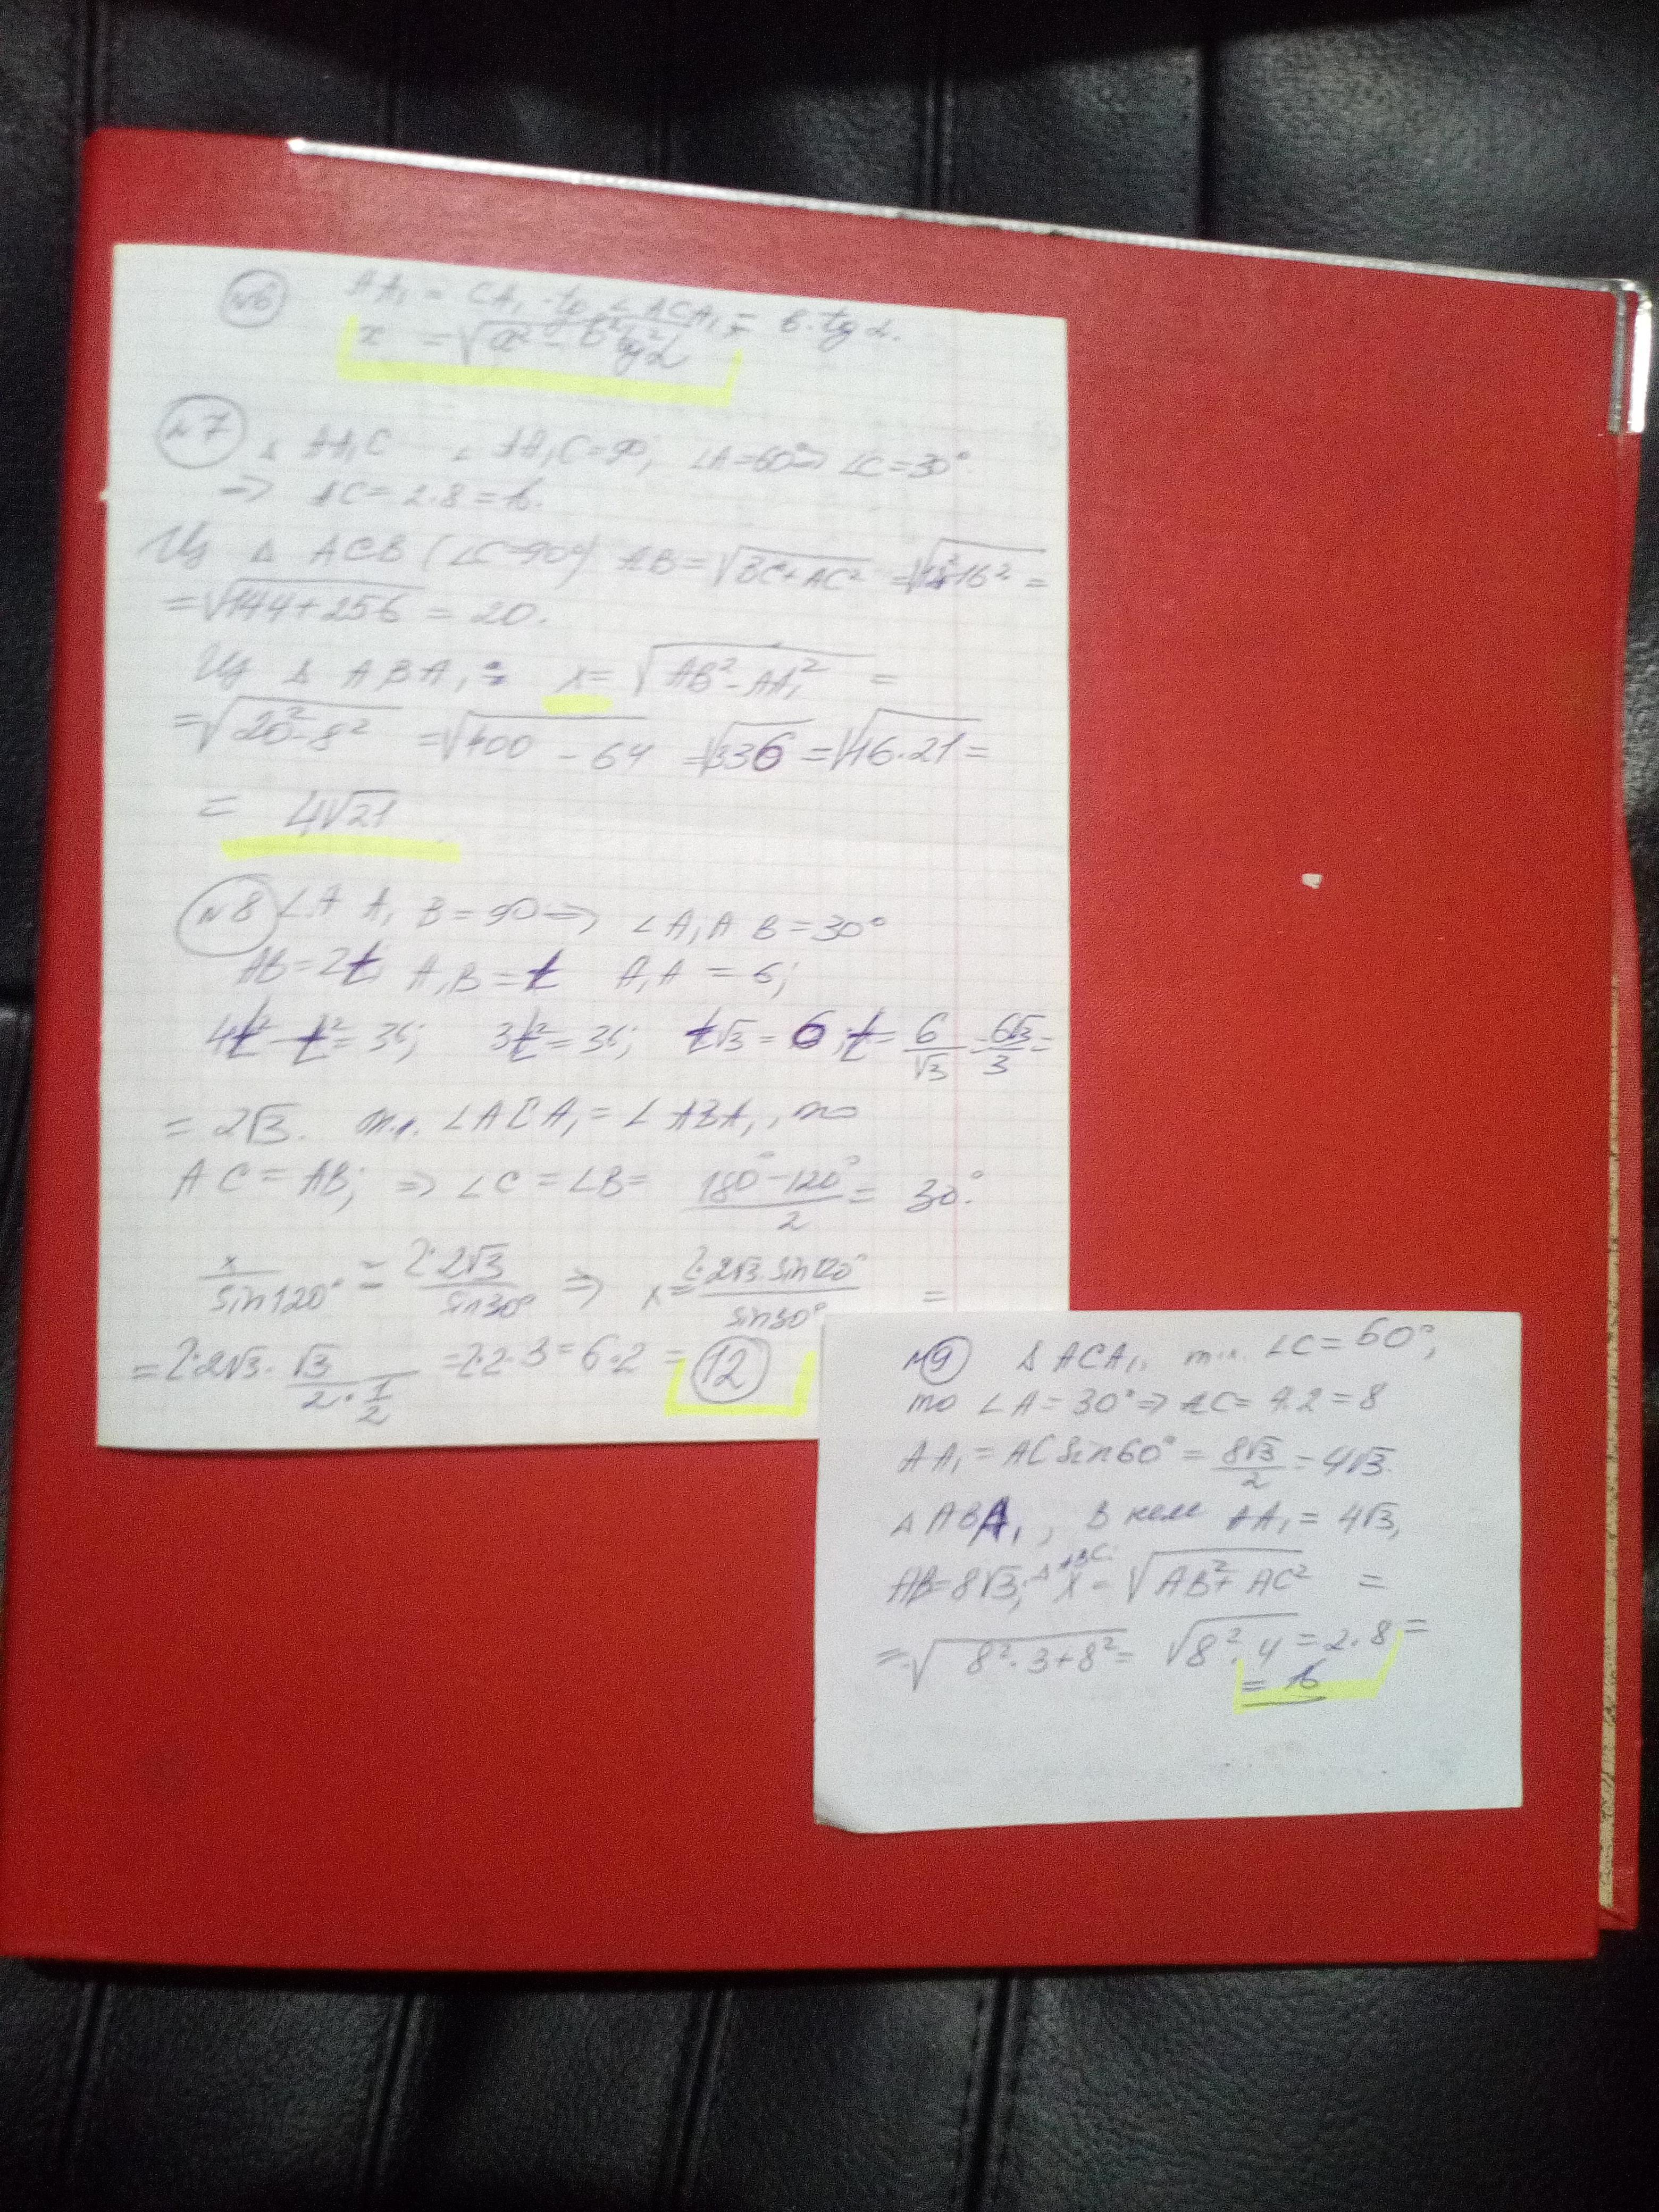 №6 AA₁ = CA₁ · tg ∠ACA₁ = b · tg α.
x = √(a² − b² tg² α)
№7 ∆ AA₁C ∠ AA₁C = 90°, ∠A = 60° ⇒ ∠C = 30°
⇒ AC = 2·8 = 16.
Из ∆ ACB (∠C = 90°) AB = √(BC + AC²) = √(12² 16²) =
= √(144 + 256) = 20.
Из ∆ ABA₁: x = √(AB² − AA₁²) =
= √(20² − 8²) = √(400 − 64) = √336 = √(16·21) =
= 4√21
№8 ∠A A₁ B = 90 ⇒ ∠A₁A B = 30°
AB = 2t, A₁B = t A₁A = 6;
4t² − t² = 36; 3t² = 36; t√3 = 6; t = 6/√3 = 6√3/3 =
= 2√3. т.к. ∠ACA₁ = ∠ABA₁, то
AC = AB; ⇒ ∠C = ∠B = (180° − 120°)/2 = 30°.
x/sin120° = 2·2√3/sin30° ⇒ x = 2·2√3·sin120°/sin30° =
= 2·2√3 · √3/(2·1/2) = 2·2·3 = 6·2 = 12
№9 ∆ ACA₁, т.к. ∠C = 60°,
то ∠A = 30° ⇒ AC = 4·2 = 8
AA₁ = AC sin60° = 8√3/2 = 4√3.
∆ ABA₁, в нем AA₁ = 4√3,
AB = 8√3; ∆ ABC: x = √(AB² + AC²) =
= √(8²·3 + 8²) = √(8²·4) = 2·8 =
= 16